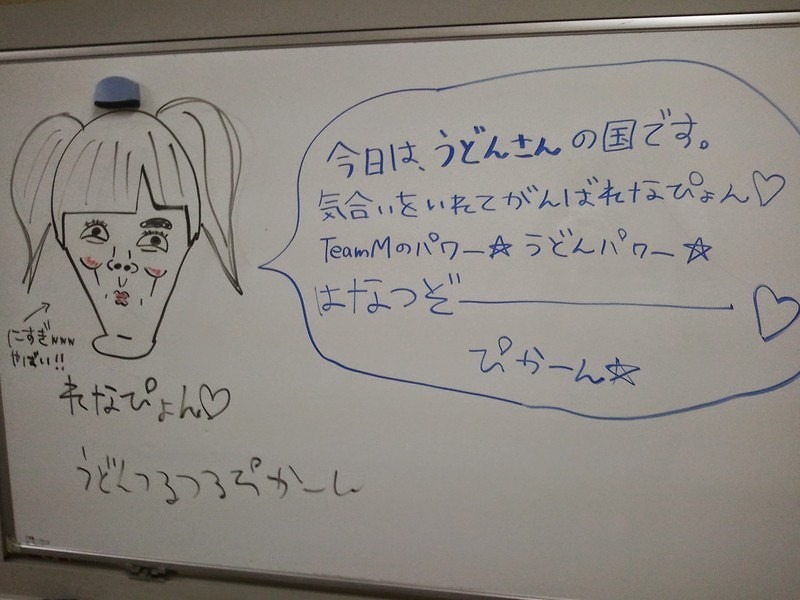 今日は、うどんさんの国です。
気合いをいれてがんばれなぴょん♡
TeamMのパワー☆ うどんパワー☆
はなつぞ―――――♡
ぴかーん☆
にすぎwww
やばい!!
れなぴょん♡
うどんつるつるぴかーん